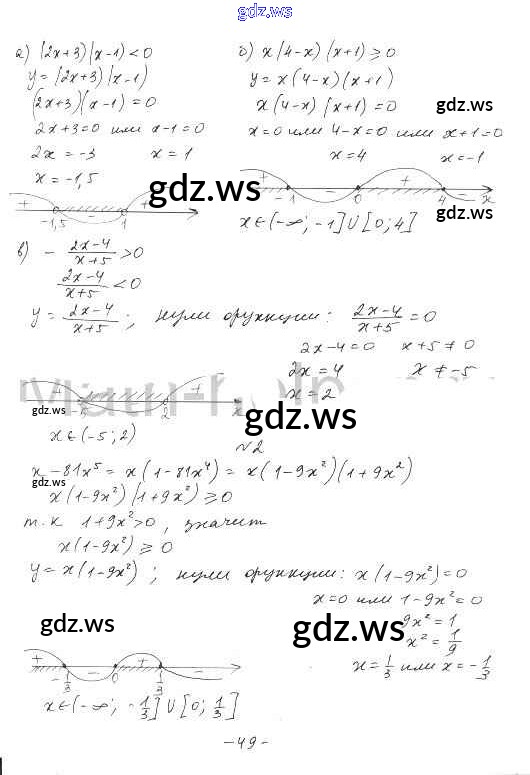 gdz.ws
а) (2x+3)(x-1)<0
y=(2x+3)(x-1)
(2x+3)(x-1)=0
2x+3=0 или x-1=0
2x=-3 x=1
x=-1,5
+ - +
-1,5 1
б) x(4-x)(x+1)≥0
y=x(4-x)(x+1)
x(4-x)(x+1)=0
gdz.ws
x=0 или 4-x=0 или x+1=0
x=4 x=-1
gdz.ws
+ - + -
-1 0 4 x
x∈(-∞; -1]∪[0; 4]
в) - (2x-4)/(x+5) >0
(2x-4)/(x+5) <0
y = (2x-4)/(x+5); нули функции: (2x-4)/(x+5) =0
2x-4=0 x+5≠0
2x=4 x≠-5
x=2
+ - +
2 x
gdz.ws
gdz.ws
x∈(-5; 2)
№2
x-81x⁵= x(1-81x⁴)= x(1-9x²)(1+9x²)
gdz.ws
x(1-9x²)(1+9x²)≥0
т.к 1+9x²>0, значит
x(1-9x²)≥0
y=x(1-9x²); нули функции: x(1-9x²)=0
x=0 или 1-9x²=0
9x²=1
x²=1/9
x=1/3 или x=-1/3
gdz.ws
gdz.ws
gdz.ws
+ - + -
-1/3 0 1/3
x∈(-∞; -1/3]∪[0; 1/3]
-49-